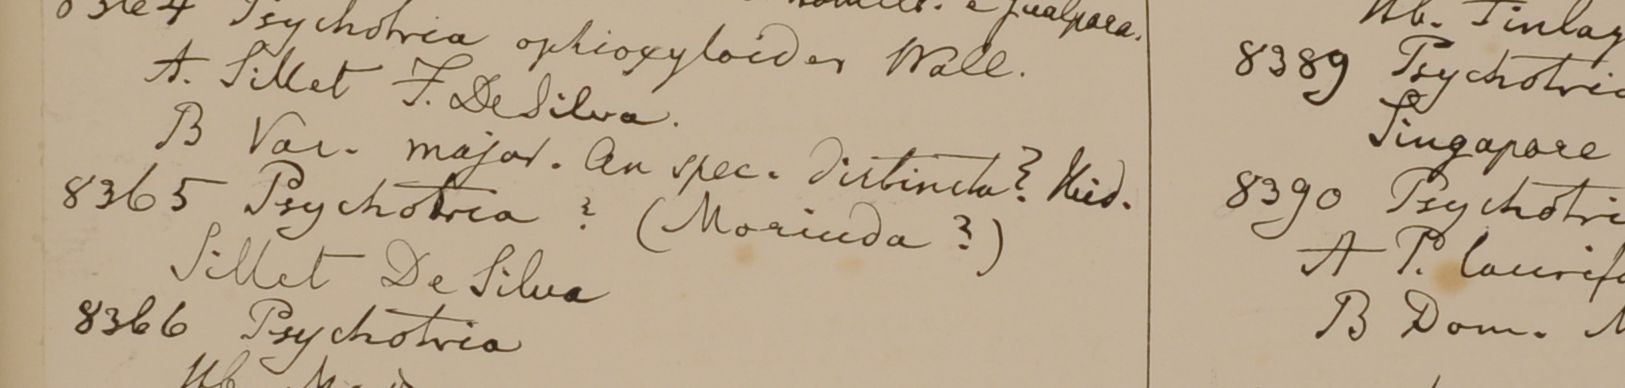 8364 Psychotria ophioxyloides Wall.
A. Sillet F. De Silva.
B Var. major. An spec. distincta? Ibid.
8365 Psychotria ? (Morinda ?)
Sillet De Silva
8366 Psychotria
Hb. Finlay
8389 Psychotri
Singapore
8390 Psychotri
A P. laurif
B Dom.